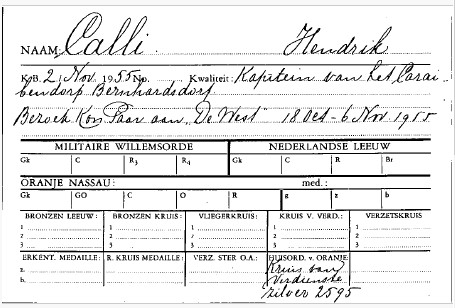 NAAM: Calli. Hendrik
K.B. 2 Nov. 1955 No. Kwaliteit: Kapitein van het Carai-
bendorp Bernhardsdorf
Bezoek Kon. Paar aan „De West" 18 Oct - 6 Nov. 1955
MILITAIRE WILLEMSORDE NEDERLANDSE LEEUW
Gk C R3 R4 Gk C R Br
ORANJE NASSAU: med.:
Gk GO C O R g z b
BRONZEN LEEUW: BRONZEN KRUIS: VLIEGERKRUIS: KRUIS V. VERD.: VERZETSKRUIS
1 1 1 1 1
2 2 2 2 2
3 3 3 3 3
ERKENT. MEDAILLE: R. KRUIS MEDAILLE: VERZ. STER O.A.: HUISORD. v. ORANJE:
a. Kruis van
b. Verdienste
zilver 2595